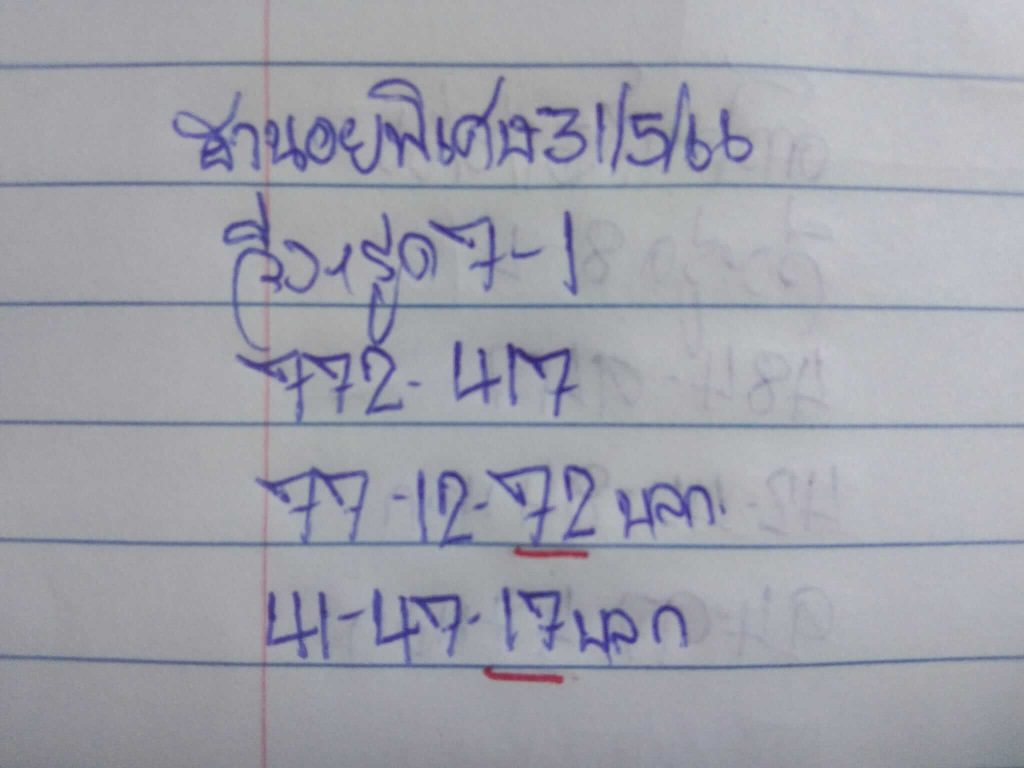 ฮานอยพิเศษ31/5/66
วิ่ง+รูด7-1
772-417
77-12-72 บลก.
41-47-17 บลก